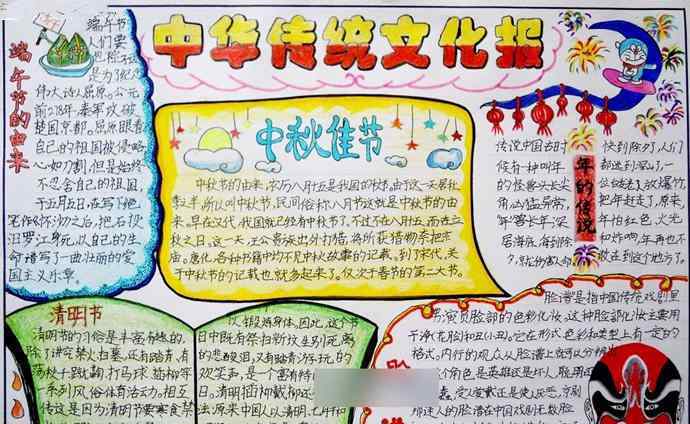 中华传统文化报
端午节的由来
端午节
人们要
是为了纪
伟大诗人屈原。公元
前278年，秦军攻破
楚国京都。屈原眼看
自己的祖国被侵略
心如刀割，但是始终
不忍舍自己的祖国，
于五月五日，在写下绝
笔作怀沙之后，抱石投
汨罗江身死，以自己的生
命谱写了一曲壮丽的爱
国主义乐章。
中秋佳节
中秋节的由来，农历八月十五是我国的秋节，由于这一天居秋
季之半，所以叫中秋节，民间俗称八月节这就是中秋节的由
来。早在汉代，我国就已经有中秋节了，不过不在八月十五，而在立
秋之日，这一天，王公贵族出外打猎，将所获猎物祭把宗
庙。唐化，各种书籍中均不见中秋故事的记载，到了宋代，关
于中秋节的记载也就多起来了，仅次于春节的第二大节。
年的传说
传说中国古时
候有一种叫年
的怪兽头长尖
角，凶猛异常，
年兽长年深
居海底，每到除
夕，
快到除夕，人们
都逃到深山，一
位
把年赶走了，原来，
年怕红色，火光
和炸响，年再也不
敢到这个地方了。
清明节
清明节的习俗是丰富有趣的，
除了讲究禁火扫墓，还有踏青，荡
秋千，蹴鞠，打马球，插柳等
一系列风俗体育活动，相互
传这是因为清明节要寒食禁
以锻炼身体，因此，这个节
日中既有祭扫新坟生别死离
的悲酸泪，又有踏青游玩的
欢笑声，是一个富有特
日。清明插柳戴柳还
法原来中国人以清明，七月
脸谱是指中国传统戏剧里
男演员脸部的色彩化妆，这种脸部化妆主要用
于净(花脸)和丑(小丑)，它在形式，色彩和类型上有一定的
格式，内行的观众从脸谱上就可以分辨出
角色是英雄还是坏人，聪
受人爱戴还是使人厌恶，京剧
那迷人的脸谱在中国戏剧无数脸
脸